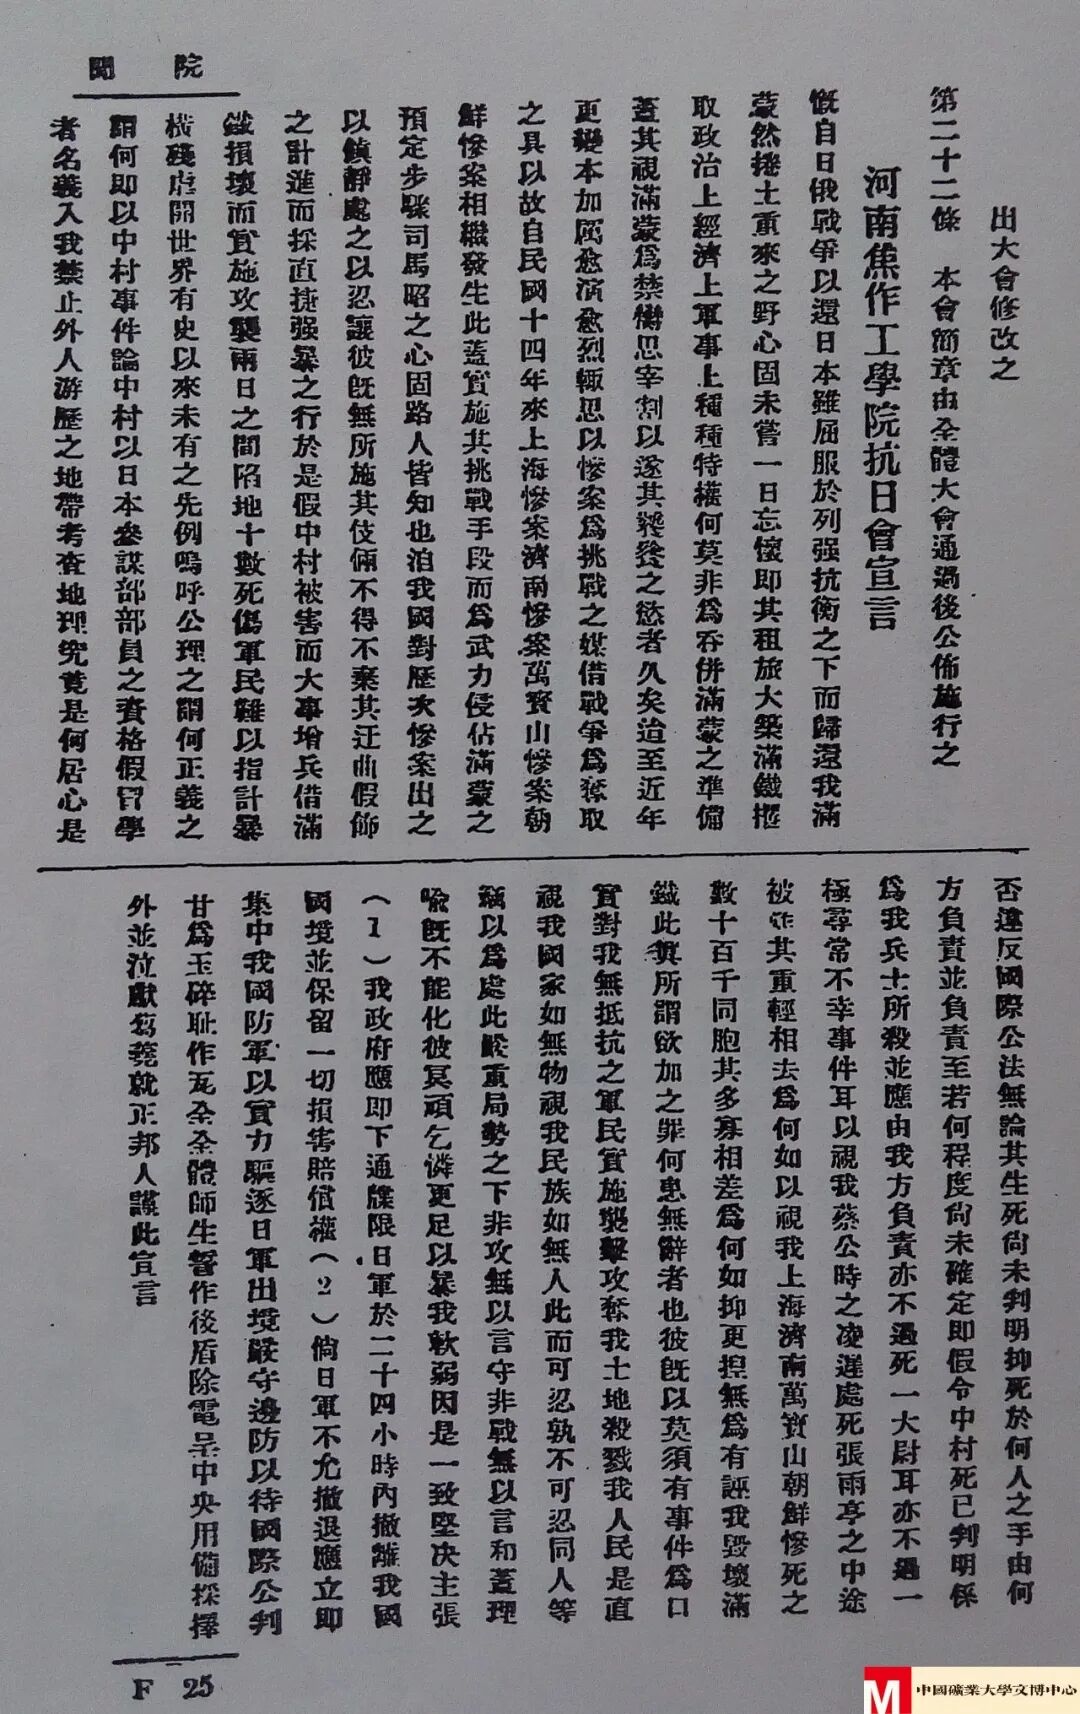 院聞
出大會修改之
第二十二條　本會簡章由全體大會通過後公佈施行之
河南焦作工學院抗日會宣言
慨自日俄戰爭以還日本雖屈服於列强抗衡之下而歸還我滿
蒙然捲土重來之野心固未嘗一日忘懷即其租旅大築滿鐵攫
取政治上經濟上軍事上種種特權何莫非爲吞併滿蒙之準備
蓋其視滿蒙爲禁臠思宰割以遂其饕餮之慾者久矣迨至近年
更變本加厲愈演愈烈輙思以慘案爲挑戰之媒借戰爭爲奪取
之具以故自民國十四年來上海慘案濟南慘案萬寳山慘案朝
鮮慘案相繼發生此蓋實施其挑戰手段而爲武力侵佔滿蒙之
預定步驟司馬昭之心固路人皆知也洎我國對歷次慘案出之
以鎮靜處之以忍讓彼旣無所施其伎倆不得不棄其迂曲假飾
之計進而採直捷强暴之行於是假中村被害而大事增兵借滿
鐵損壞而實施攻襲兩日之間陷地十數死傷軍民難以指計暴
橫殘虐開世界有史以來未有之先例嗚呼公理之謂何正義之
謂何即以中村事件論中村以日本參謀部部員之資格假冒學
者名義入我禁止外人游歷之地帶考查地理究竟是何居心是
否違反國際公法無論其生死尙未判明抑死於何人之手由何
方負責並負責至若何程度尙未確定即假令中村死已判明係
爲我兵士所殺並應由我方負責亦不過死一大尉耳亦不過一
極尋常不幸事件耳以視我蔡公時之凌遲處死張雨亭之中途
被炸其重輕相去爲何如以視我上海濟南萬寳山朝鮮慘死之
數十百千同胞其多寡相差爲何如抑更捏無爲有誣我毀壞滿
鐵此眞所謂欲加之罪何患無辭者也彼旣以莫須有事件爲口
實對我無抵抗之軍民實施襲擊攻奪我土地殺戮我人民是直
視我國家如無物視我民族如無人此而可忍孰不可忍同人等
竊以爲處此嚴重局勢之下非攻無以言守非戰無以言和蓋理
喻旣不能化彼冥頑乞憐更足以暴我軟弱因是一致堅决主張
（1）我政府應即下通牒限日軍於二十四小時內撤離我國
國境並保留一切損害賠償權（2）倘日軍不允撤退應立即
集中我國防軍以實力驅逐日軍出境嚴守邊防以待國際公判
甘爲玉碎恥作瓦全全體師生誓作後盾除電呈中央用備採擇
外並泣獻芻蕘就正邦人謹此宣言
F 25
中國礦業大學文博中心